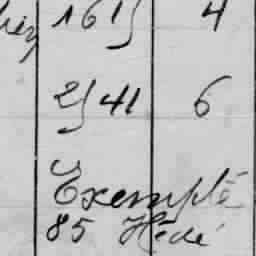 161} 4
2} 41 6
Exempté
85 Hédé